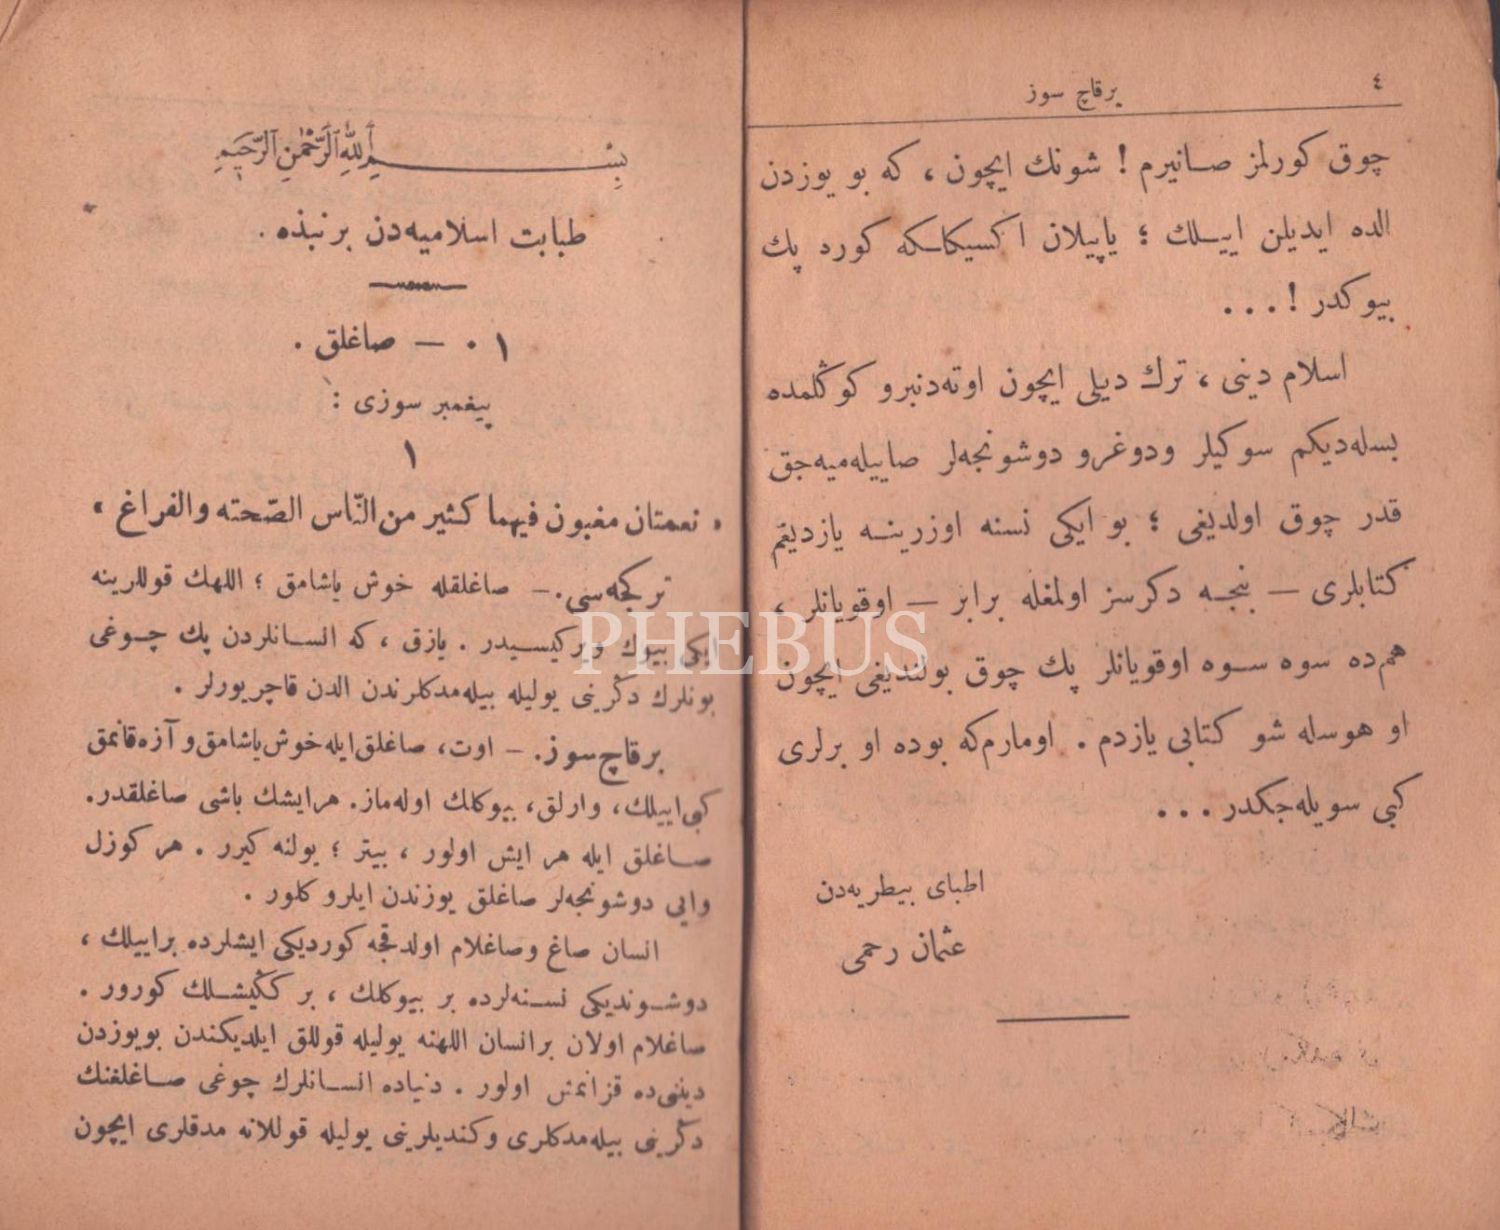 ٤
برقاچ سوز
چوق كورلمز صـانيرم ! شونك ايچون ، كه بو يوزدن
الده ايديلن اييـلك ؛ ياپيلان اكسيكلـكه كوره پك
بيوكدر ! . . .
اسلام دينى ، ترك ديلى ايچون اوته‌دنبرو كوڭلمده
بسله‌ديكم سوكيلر ودوغرو دوشونجه‌لر صاييله‌ميه‌جق
قدر چوق اولديغى ؛ بو ايكى نسنه اوزرينـه يازديغم
كتابلرى — نيجـه دكرسز اولمغله برابر — اوقويانلر ،
هم‌ده سوه سـوه اوقويانلر پك چوق بولنديغى ايچون
او هوسله شو كتابى يازدم . اومارم‌كه بوده او برلرى
كبى سويله‌جكدر . . .
اطباى بيطريه‌دن
عثمان رحمى
بِسْمِ ٱللهِ ٱلرَّحْمٰنِ ٱلرَّحِيمِ
طبابت اسلاميه‌دن بر نبذه .
١ . — صاغلق .
پيغمبر سوزى :
١
« نعمتان مغبون فيهما كثير من النّاس الصّحته والفراغ »
تركجه‌سى. — صاغلقله خوش ياشامق ؛ اللهك قوللرينه
ايكى بيوك ويركيسيدر . يازق ، كه انسـانلردن پك چـوغى
بونلرك دڭرينى يوليله بيله‌مدكلرندن الدن قاچريورلر .
برقاچ سوز. — اوت، صاغلق ايله خوش ياشامق و آزه قانمق
كبى اييلك، وارلق، بيوكلك اوله‌ماز. هرايشك باشى صاغلقدر.
صـاغلق ايله هر ايش اولور ، بيتر ؛ يولنه كيرر . هر كوزل
وايى دوشونجه‌لر صاغلق يوزندن ايلرو كلور .
انسان صاغ وصاغلام اولدقجه كورديكى ايشلرده بر اييلك ،
دوشـونديكى نسـنه‌لرده بر بيوكلك ، بر كڭيشـلك كورور .
صاغلام اولان برانسان اللهنه يوليله قوللق ايلديكندن بويوزدن
دينى‌ده قزانمش اولور . دنياده انسـانلرك چوغى صـاغلغنك
دڭرينى بيله‌مدكلرى وكنديلرينى يوليله قوللانه مدقلرى ايچون
PHEBUS